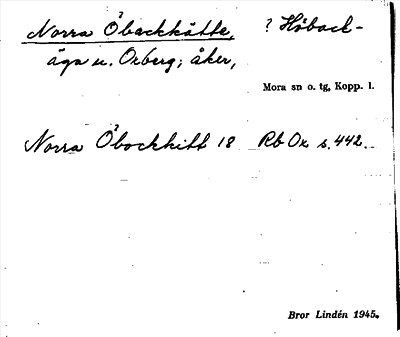 Norra Öbackkätte, ? Håback-
äga u. Oxberg; åker,
Mora sn o. tg, Kopp. l.
Norra Öbockkitt 18 Rb Ox s. 442.
Bror Lindén 1945.